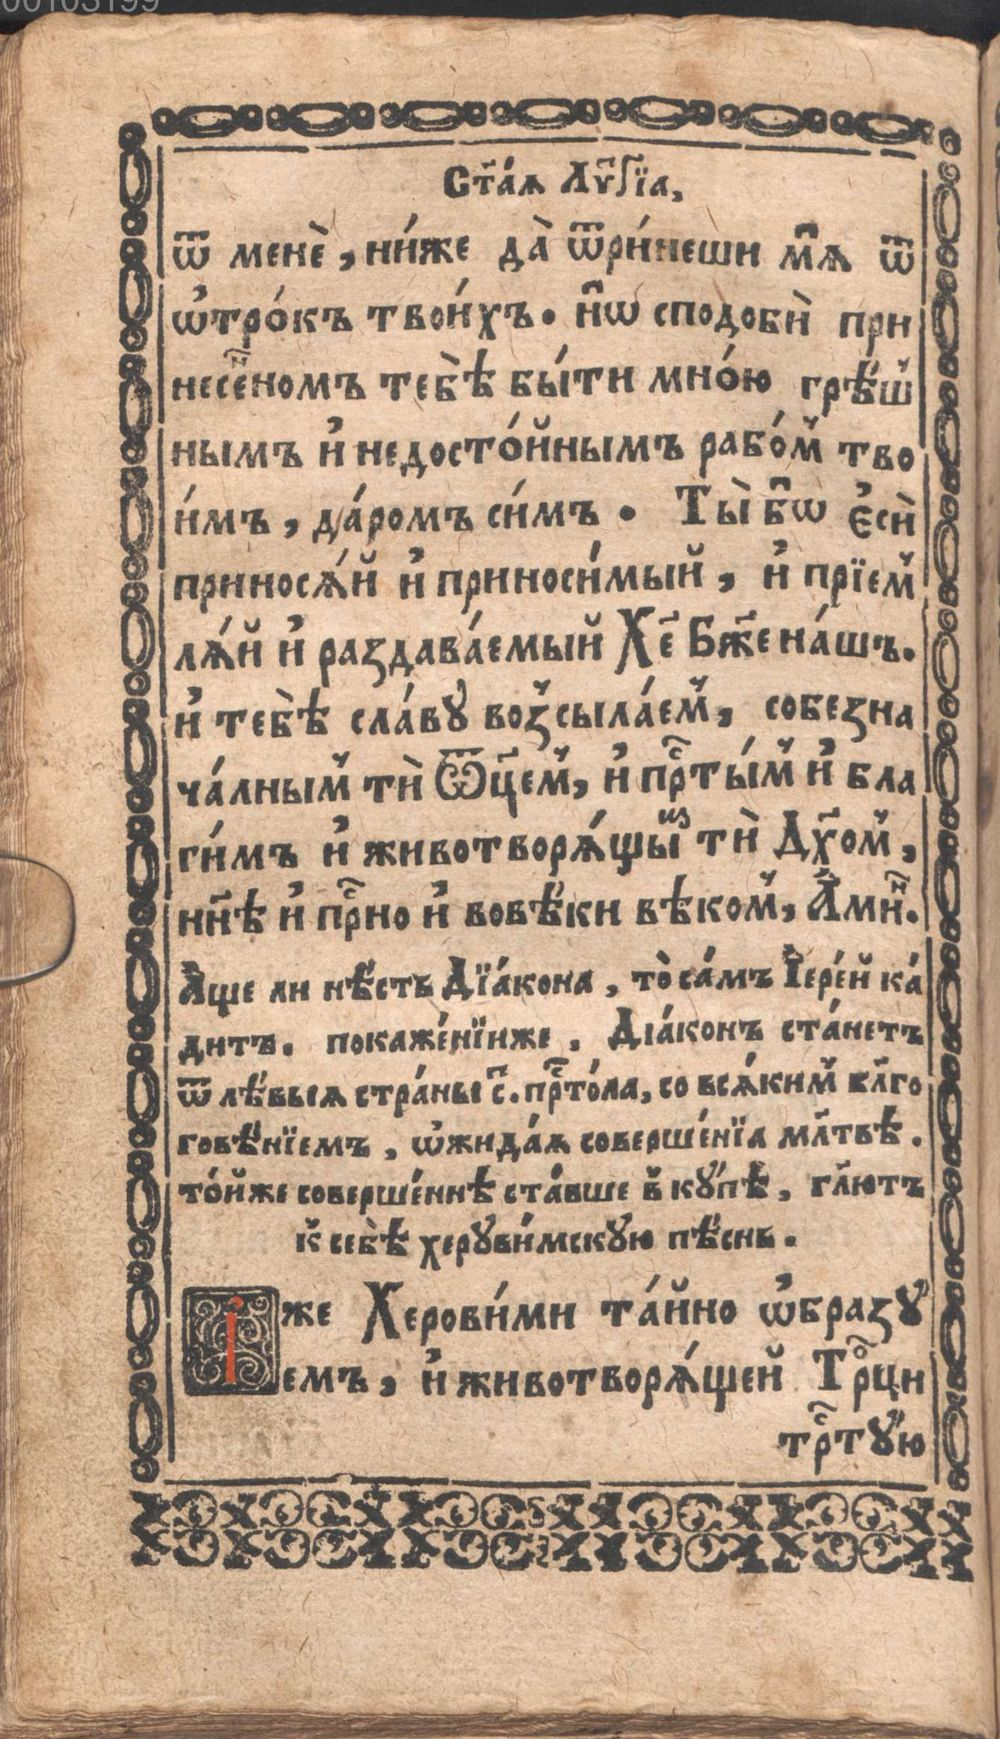 00103199
Ст҃аѧ Лѵ҃гїа,
ѿ менѐ, ни́же да̀ ѿри́неши мѧ̀ ѿ
ѡ҆тро́къ твои́хъ. н҃ѡ сподобѝ при
несе́нномъ тебѣ̀ бы́ти мно́ю грѣ́ш
нымъ и҆ недосто́йнымъ рабо́м тво
и́мъ, да́ромъ си́мъ. Ты̀ б҃ѡ є҆сѝ
приносѧ́й и҆ приноси́мый, и҆ прїем
лѧ́й и҆ раздава́емый Хе҃ Бж҃е на́шъ.
и҆ тебѣ̀ сла́вꙋ воз̾сыла́ем, собезна
ча́лным тѝ Ѿц҃ем, и҆ пр҃ты́м и҆ бла
ги́мъ и҆ животворѧ́щым тѝ Дх҃ом,
нн҃ѣ и҆ пр҃но и҆ вовѣ́ки вѣком, А҆ми́н.
А҆ще ли нѣ́сть Дїа́кона, то̀ са́мъ І҆ере́й ка
дитъ. покаже́нїиже. Дїа́конъ ста́нетъ
ѿ лѣ́выѧ страны̀ с҃. пр҃то́ла, со всѧ́ким бл҃го
говѣ́нїемъ, ѡ҆жида́ѧ соверше́нїѧ мл҃твѣ.
то́йже соверше́ннѣ ста́вше в̾кꙋ́пѣ, гл҃ютъ
к̾ себѣ̀ херꙋви́мскꙋю пѣ́снь.
І҆же Херови́ми та́йно ѡ҆бразꙋ́
емъ, и҆ животворѧ́щей Тр҃ци
тр҃тꙋ́ю